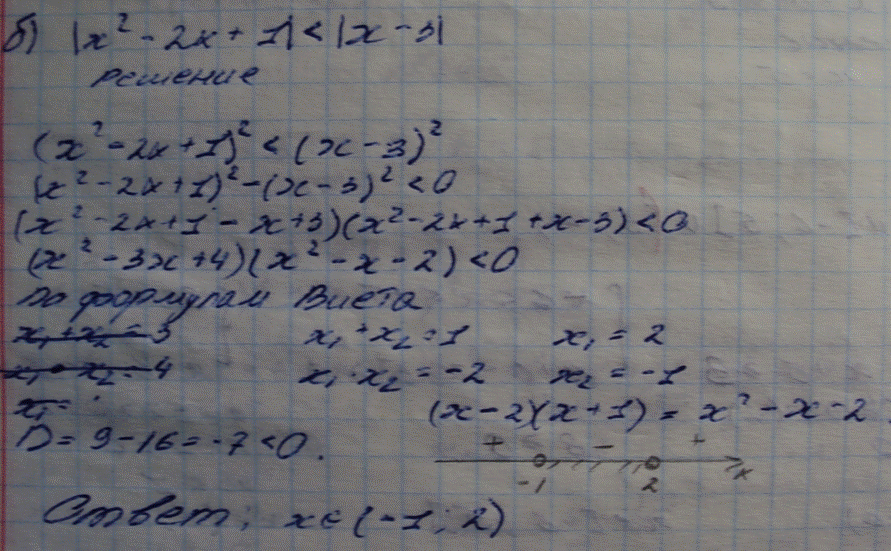 б) |x² - 2x + 1| < |x - 3|
решение
(x² - 2x + 1)² < (x - 3)²
(x² - 2x + 1)² - (x - 3)² < 0
(x² - 2x + 1 - x + 3)(x² - 2x + 1 + x - 3) < 0
(x² - 3x + 4)(x² - x - 2) < 0
по формулам Виета
x₁ + x₂ = 3 x₁ + x₂ = 1 x₁ = 2
x₁ · x₂ = 4 x₁ · x₂ = -2 x₂ = -1
x₁ = (x - 2)(x + 1) = x² - x - 2
D = 9 - 16 = -7 < 0.
+ - +
-1 2 x
Ответ: x ∈ (-1; 2)